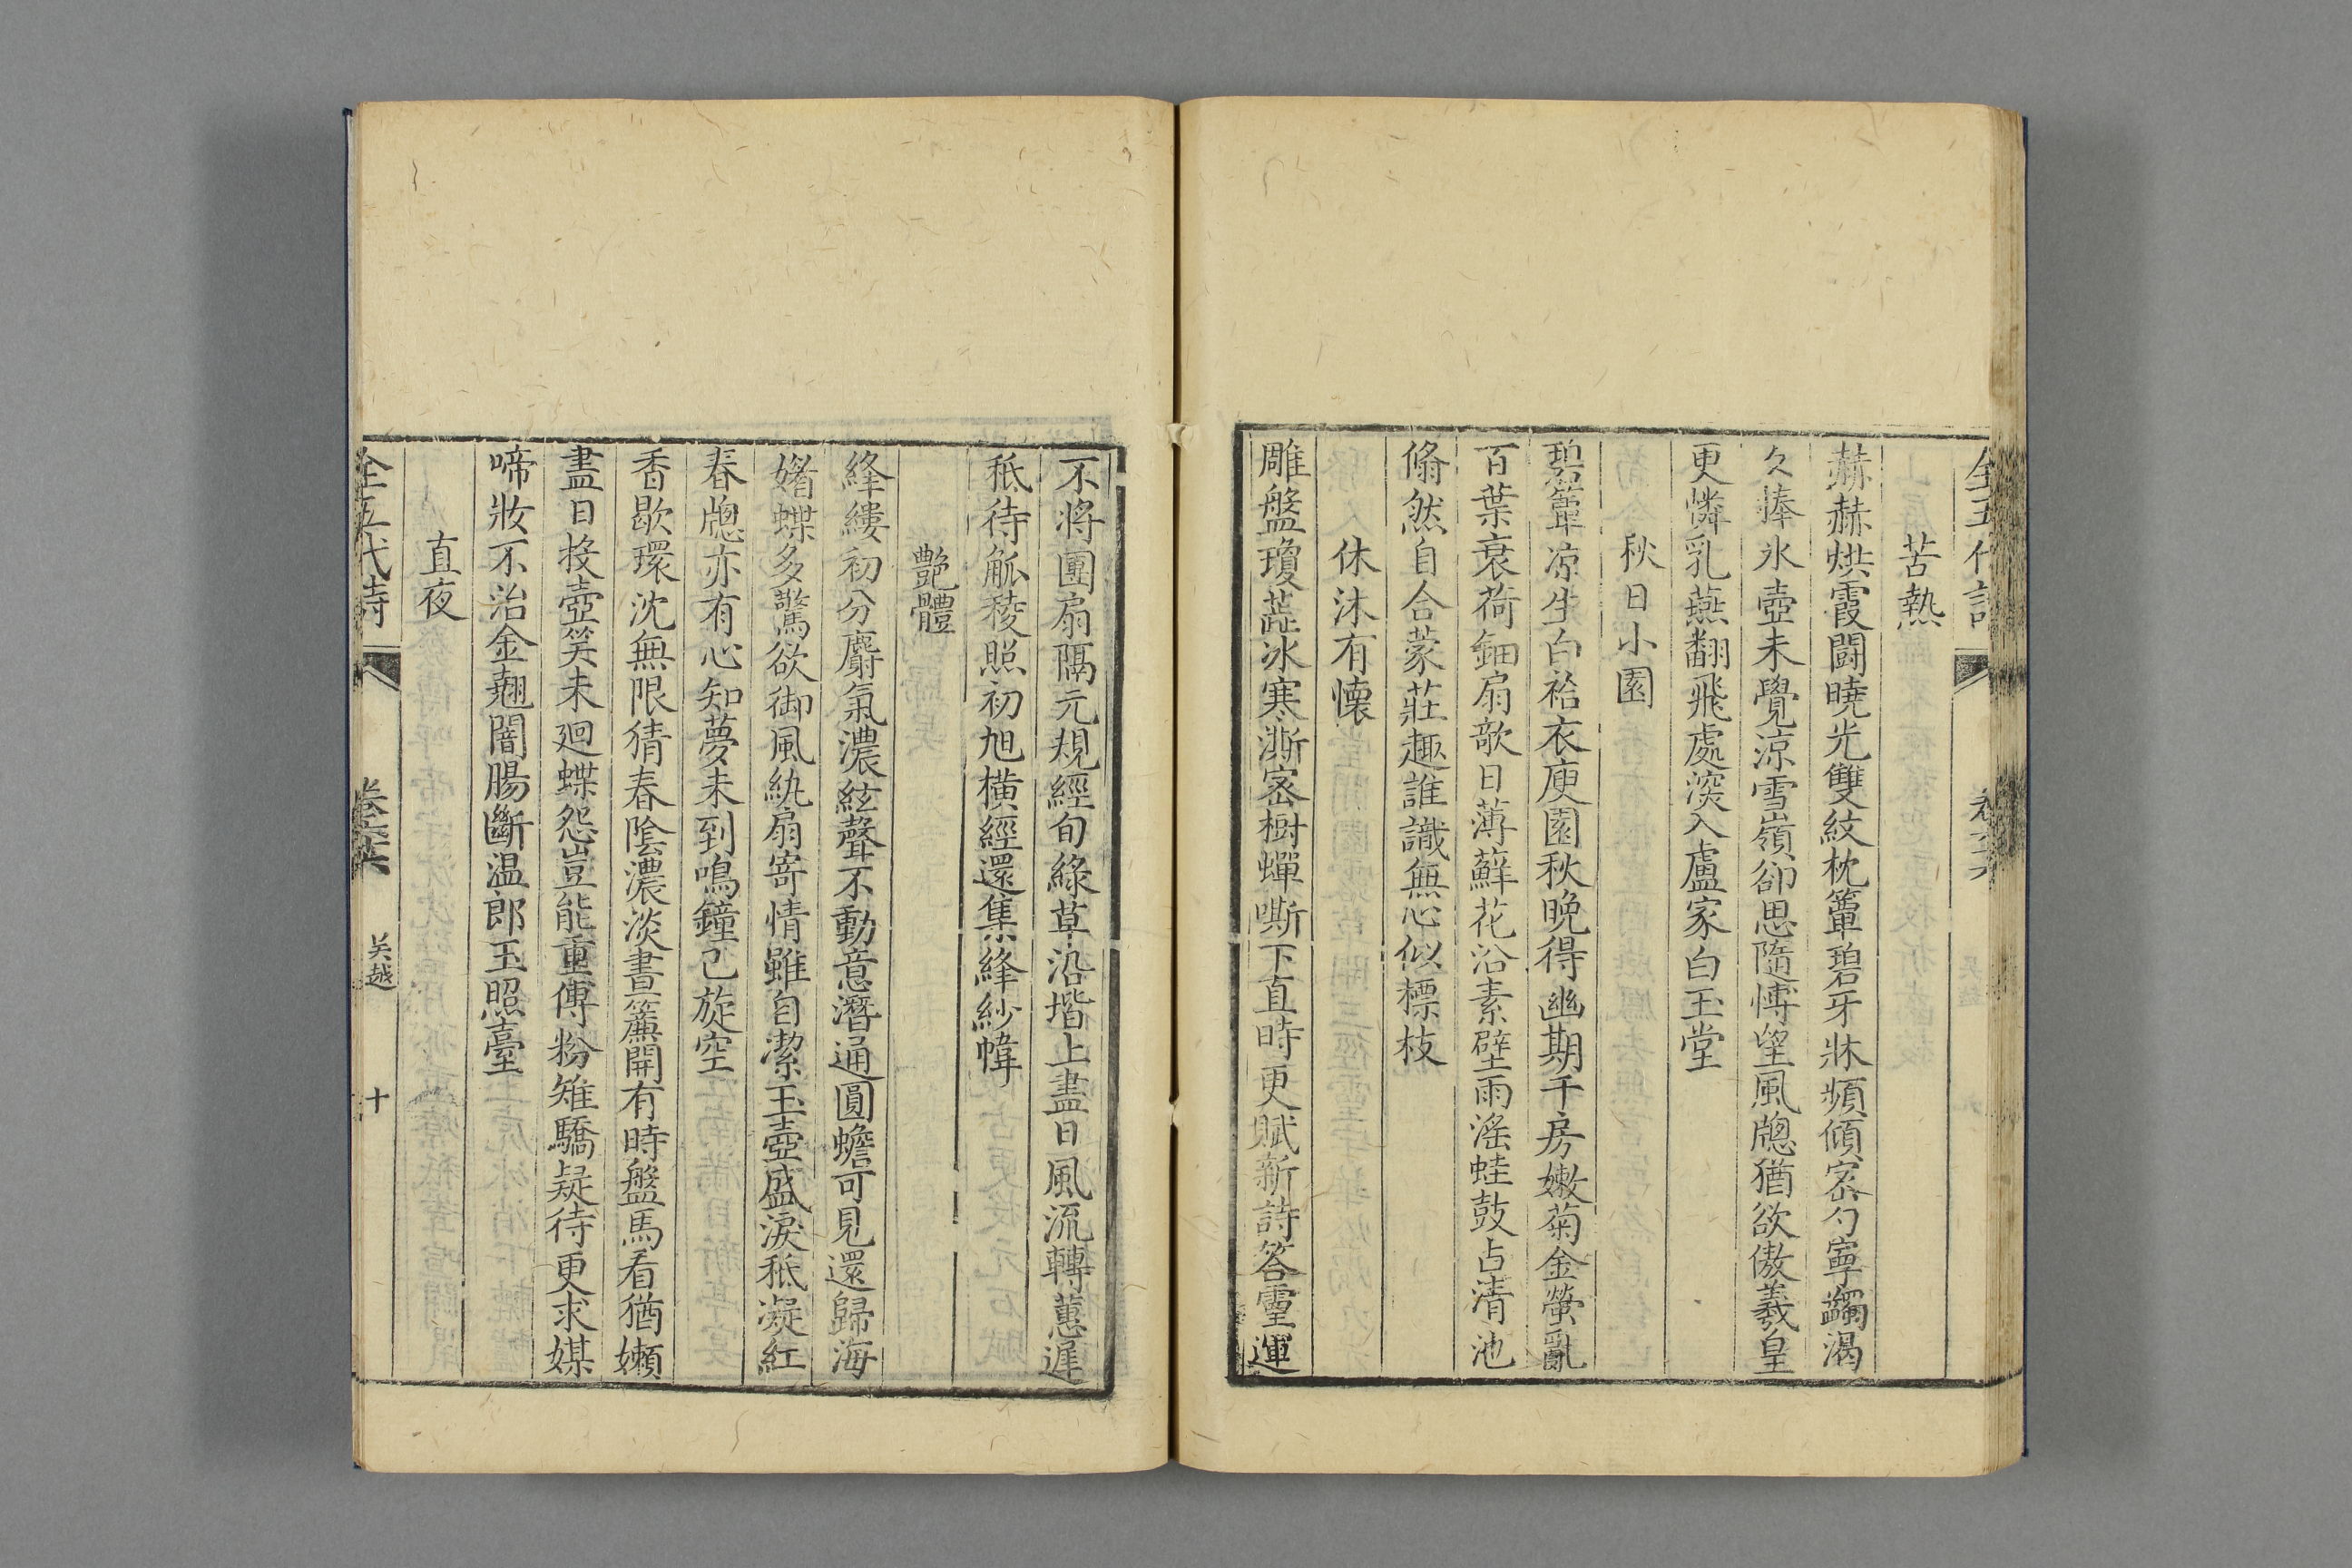 苦熱
赫赫烘霞鬬曉光雙紋枕簟碧牙牀頻傾宻勺寧蠲渴
久捧氷壺未覺涼雪嶺卻思隨愽望風牕猶欲傲羲皇
更憐乳燕翻飛處深入盧家白玉堂
秋日小園
碧簟凉生白袷衣庾園秋晚得幽期千房嫩菊金螢亂
百葉衰荷鈿扇欹日薄蘚花沿素壁雨滛蛙鼓占清池
翛然自合蒙莊趣誰識無心似標枝
休沐有懐
雕盤瓊蘂冰寒澌宻樹蟬嘶下直時更賦新詩答靈運
不將團扇隔元規經旬綠草沿堦上盡日風流轉蕙遲
秪待觚稜照初旭橫經還集絳紗幃
艷體
絳縷初分麝氣濃絃聲不動意潛通圓蟾可見還歸海
媎蝶多驚欲御風紈扇寄情雖自潔玉壺盛淚秪凝紅
春牕亦有心知夢未到鳴鐘已旋空
香歇環沈無限猜春陰濃淡晝簾開有時盤馬看猶嬾
盡日投壺笑未廻蝶怨豈能重傅粉雉驕疑待更求媒
啼妝不治金翹闇腸斷温郎玉照臺
直夜
全五代詩
卷六六
吴越
十